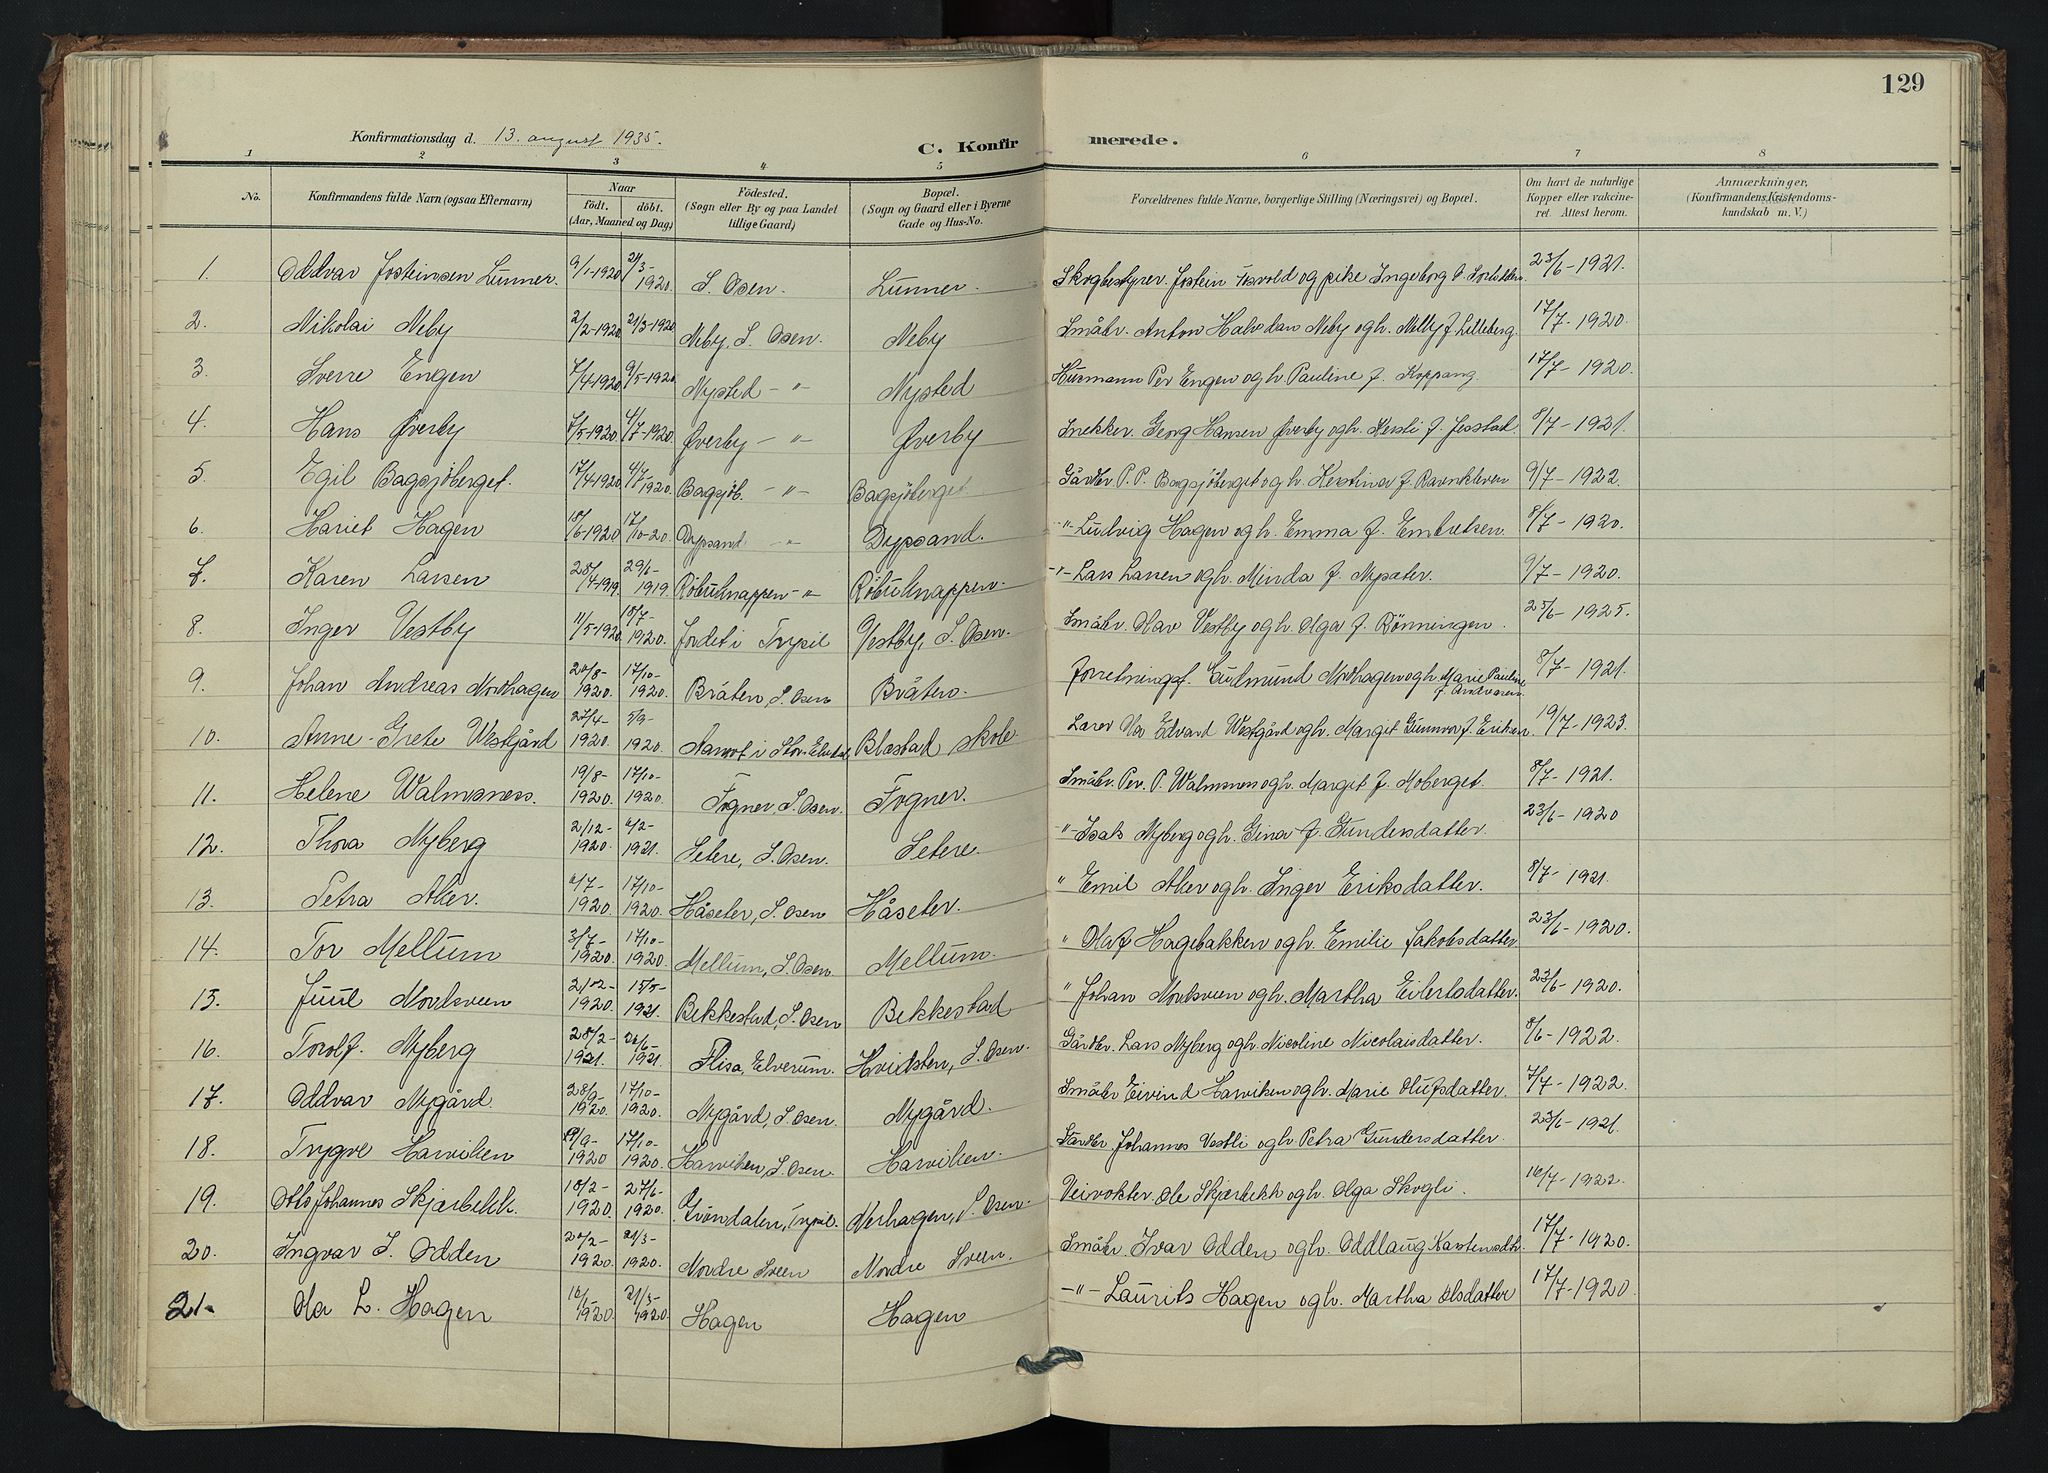 129
Konfirmationsdag d. 13. august 1935.
C. Konfirmerede.
1 2 3 4 5 6 7 8
No.
Konfirmandens fulde Navn (ogsaa Efternavn)
Naar
födt. döbt.
(Aar, Maaned og Dag)
Födested.
(Sogn eller By og paa Landet
tillige Gaard)
Bopæl.
(Sogn og Gaard eller i Byerne
Gade og Hus-No.
Forældrenes fulde Navne, borgerlige Stilling (Næringsvei) og Bopæl.
Om havt de naturlige
Kopper eller vakcine-
ret. Attest herom.
Anmærkninger,
(Konfirmandens Kristendoms-
kundskab m. V.)
1. Oddvar Josteinsen Lunner. 9/1-1920 21/3-1920. S. Osen. Lunner. Skogbestyrer. Jostein og pike Ingeborg 23/6-1921.
2. Nikolai Neby 2/2-1920 21/3-1920 Neby, S. Osen. Neby Småbr. Anton Halvdan Neby ogh. Nelly f. Lilleberg. 17/7-1920.
3. Sverre Engen 7/4-1920 9/5-1920 Nysted -"- Nysted Husmann Per Engen ogh. Pauline f. Koppang. 17/7-1920.
4. Hans Øverby 7/5-1920 4/7-1920 Øverby -"- Øverby Snekker. Georg Hansen Øverby ogh. Kersti f. 8/7-1921.
5. Egil Bagsjöberget. 17/4-1920 4/7-1920. Bagsjöb. -"- Bagsjöberget. Gårdbr P. P. Bagsjöberget ogh. Kerstina f. Ravnkleven 9/7-1922.
6. Hariet Hagen 18/6-1920 17/10-20. Dypsand. -"- Dypsand. -"- Ludvig Hagen ogh. Emma f. Embretsen. 8/7-1920.
7. Karen Larsen 28/4-1919. 29/6-1919. Röbuknappen -"- Röbuknappen. -"- Lars Larsen ogh. Minda f. Nysæter. 9/7-1920.
8. Inger Vestby 11/5-1920 18/7-1920. Jordet i Trysil Vestby, S. Osen. Småbr. Olav Vestby ogh. Olga f. Rönningen. 25/6-1925.
9. Johan Andreas Nordhagen 20/8-1920 17/10-1920. Bråten, S. Osen Bråten. Forretningsf. Gudmund Nordhagen ogh. Marie Pauline f. 8/7-1921.
10. Anne-Grete Westgård 27/4-1920. 5/9-1920. i Stor-Elvdal Blæstad skole Lærer Ola Edvard Westgård ogh. Marget Gunnvor f. Eriksen. 19/7-1923.
11. Helene Walmsness. 19/8-1920. 17/10-1920. Fogner, S. Osen. Fogner. Småbr. Per. P. Walmsnes ogh. Marget f. Moberget. 8/7-1921.
12. Thora Nyberg 2/12-1920. 6/2-1921. Setere, S. Osen. Setere. -"- Isak Nyberg ogh. Gina f. Gundersdatter. 23/6-1920
13. Petra Aker. 17/10-1920. Håseter, S. Osen Håseter. " Emil Aker ogh. Inger Eriksdatter. 8/7-1921.
14. Tor Mellum 3/7-1920. 17/10-1920. Mellum, S. Osen Mellum. " Olaf Hagebakken ogh. Emilie Jakobsdatter. 23/6-1920.
15. Juul Nordsveen 15/5-1921. Bekkestad, S. Osen Bekkestad " Johan Nordsveen ogh. Martha Eilertsdatter. 23/6-1920.
16. Torolf. Nyberg 28/2-1921. 26/6-1921. Flisa, Elverum. Hvidsten, S. Osen. Gårdbr. Lars Nyberg ogh. Nicoline Nicolaisdatter. 8/6-1922.
17. Oddvar Nygård. 28/9-1920. 17/10-1920. Nygård, S. Osen. Nygård. Småbr Eivind Harviken ogh. Marie Olufsdatter. 7/7-1922.
18. Trygve Harviken 17/10-1920. Harviken, S. Osen. Harviken. Gårdbr. Johannes Vestli ogh Petra Gundersdatter. 23/6-1921.
19. Otto Johannes Skjærbekk. 18/2-1920. 27/6-1920. Gröndalen, Trysil. Nerhagen, S. Osen. Veivokter. Ole Skjærbekk ogh. Olga Skogli. 16/7-1922.
20. Ingvar I. Odden 20/2-1920. 21/3-1920. Nordre Sveen Nordre Sveen. Småbr. Ivar Odden ogh. Oddlaug Karstensdtr. 17/7-1920.
21. Ola L. Hagen 16/1-1920. 21/3-1920. Hagen Hagen -"- Laurits Hagen ogh. Martha Olsdatter 17/7-1920.